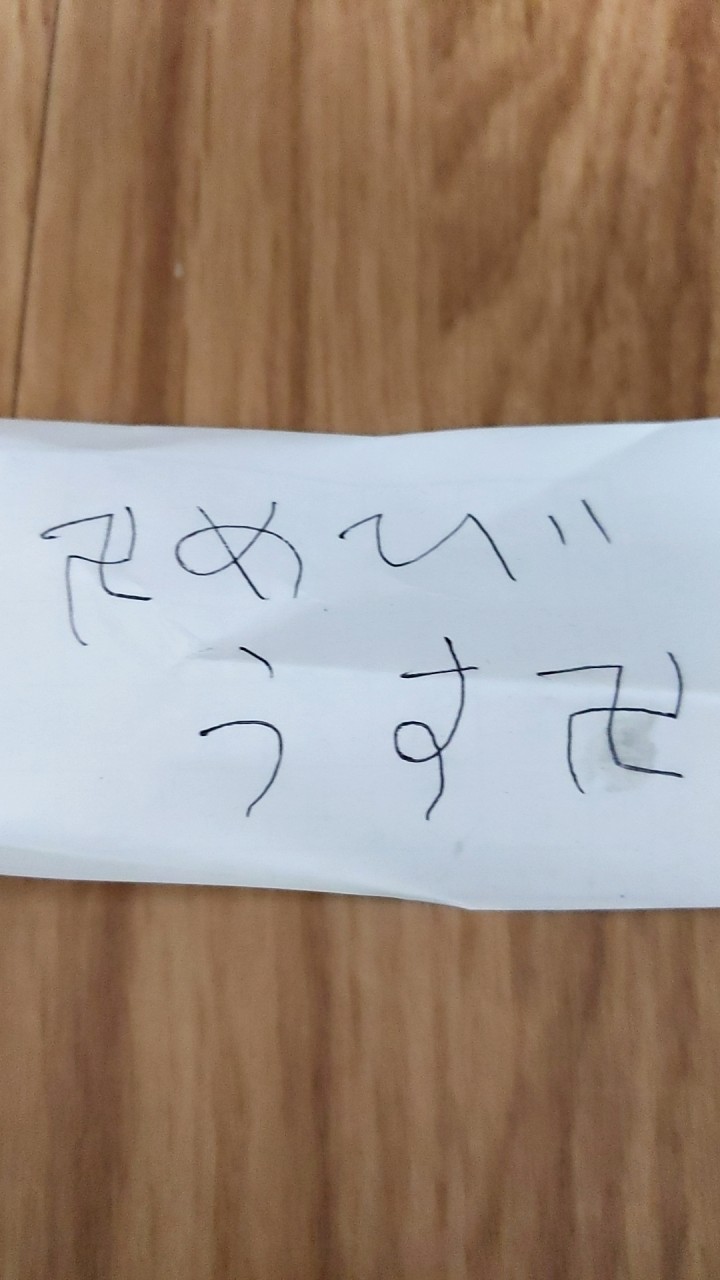 卍めび
うす卍